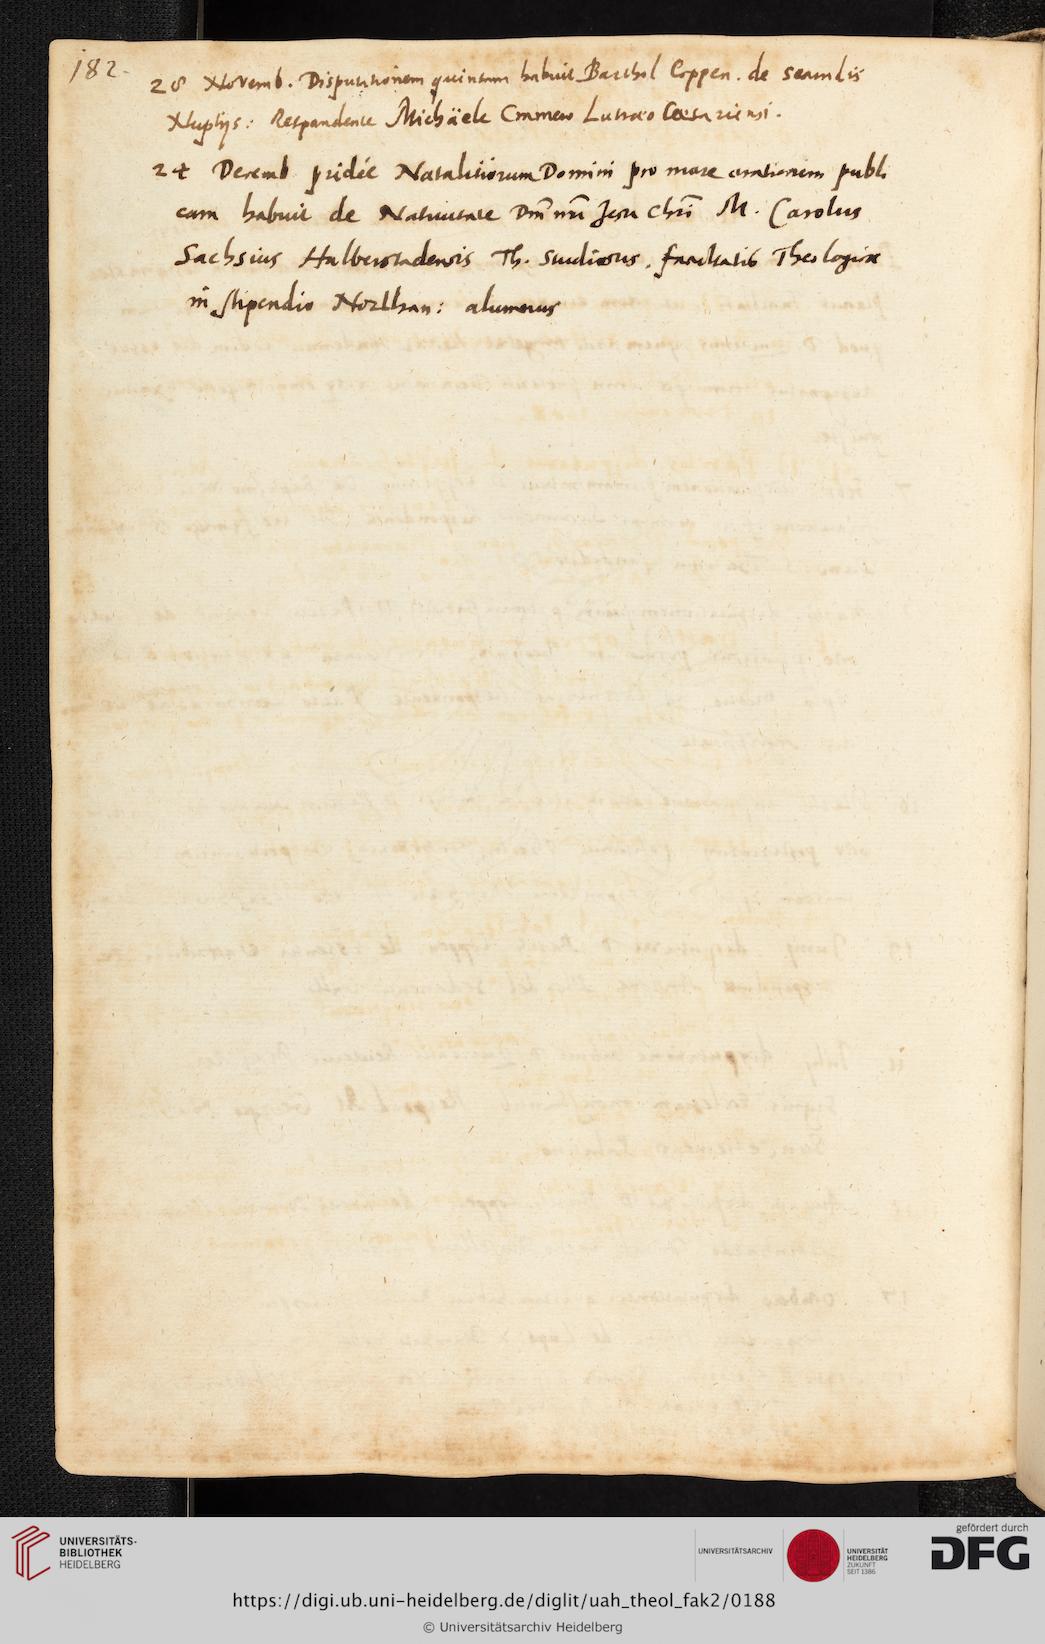 182.
28 Novemb. Disputationem quintam habuit Barthol Coppen. de secundis
Nuptijs: Respondente Michäele Emmeo Lutraeo Caesariensi.
24 Decemb pridie Natalitiorum Domini pro more orationem publi
cam habuit de Nativitate Dm̄ nrī Jesu Chrī M. Carolus
Sachsius Halberstadensis Th. studiosus, facultatis Theologicae
in stipendio Northan: alumnus
UNIVERSITÄTS-
BIBLIOTHEK
HEIDELBERG
UNIVERSITÄTSARCHIV
UNIVERSITÄT
HEIDELBERG
ZUKUNFT
SEIT 1386
gefördert durch
DFG
https://digi.ub.uni-heidelberg.de/diglit/uah_theol_fak2/0188
© Universitätsarchiv Heidelberg